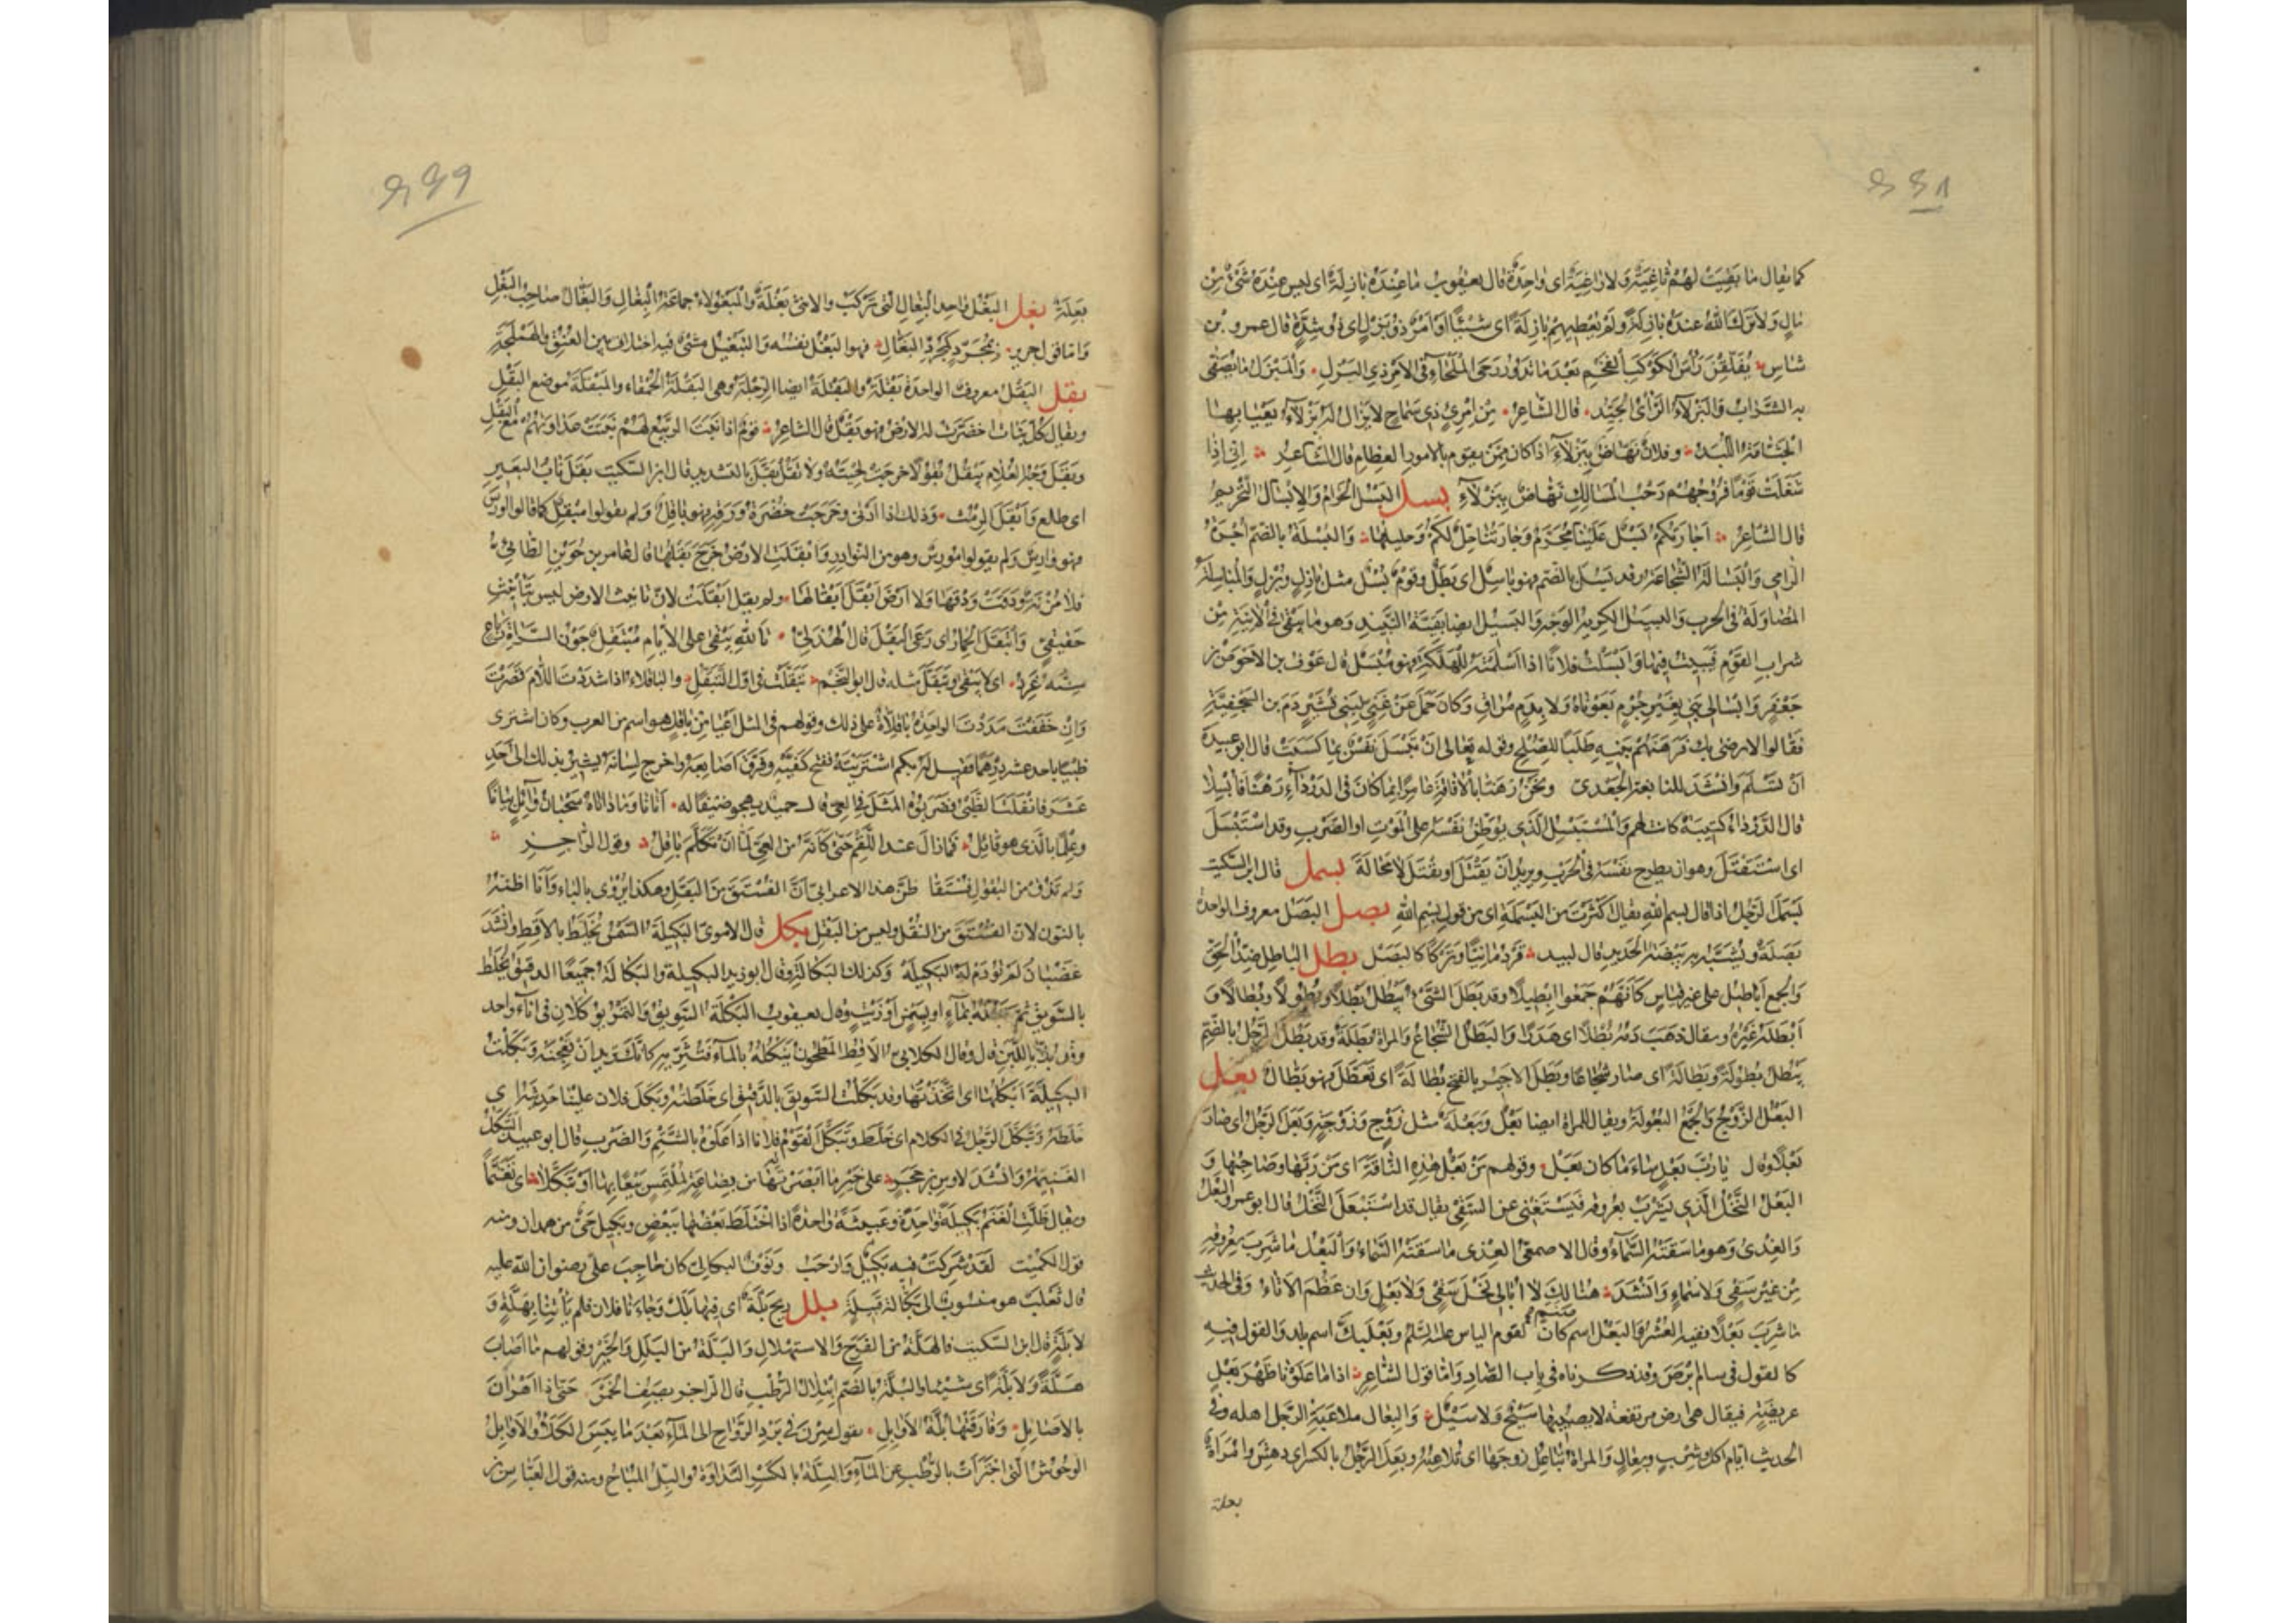 كما يقال ما بقيت لهم ثاغية ولا راغية اى واحدة قال يعقوب ما عنده بازلة اى ليس عنده شئ من
مال ولا ترك الله عنده بازلة ولم يعطهم بازلة اى شيئا وامر ذو بزل اى ذو شدة قال عمرو بن
شاس يفلقن رأس الكوكب الفخم بعد ما تدور رحى الملحاء فى الامر ذى البزل والمبزل ما يصفى
به الشراب والبزلاء الرأى الجيد قال الشاعر من امرئ ذى سماح لا يزال له بزلاء يعيا بها
الجثامة اللبد وفلان نهاض ببزلاء اذا كان ممن يقوم بالامور العظام قال الشاعر انى اذا
شغلت قوما فروجهم رحب المسالك نهاض ببزلاء بسل البسل الحرام والابسال التحريم
قال الشاعر اجارتكم بسل علينا محرم وجارتنا حل لكم وحليلها والبسلة بالضم اجرة
الراقى والبسالة الشجاعة وقد بسل بالضم فهو باسل اى بطل وقوم بسل مثل بازل وبزل والمباسلة
المصاولة فى الحرب والبسيل الكريه الوجه والبسيل ايضا بقية النبيذ وهو ما يبقى فى الآنية من
شراب القوم فيبيت فيها وابسلت فلانا اذا اسلمته للهلكة فهو مبسل قال عوف بن الاحوص بن
جعفر وابسالى بنى بغير جرم بعوناه ولا بدم مراق وكان حمل عن غنى لبنى قشير دم ابن السجفية
فقالوا لا نرضى بك فرهنهم بنيه طلبا للصلح وقوله تعالى ان تبسل نفس بما كسبت قال ابو عبيدة
ان تسلم وانشد للنابغة الجعدى ونحن رهنا بالافاقة عامرا بما كان فى الدرداء رهنا فابسلا
قال الدرداء كتيبة كانت لهم والمستبسل الذى يوطن نفسه على الموت او الضرب وقد استبسل
اى استقتل وهو ان يطرح نفسه فى الحرب ويريد ان يقتل او يقتل لا محالة بسمل قال ابن السكيت
بسمل الرجل اذا قال بسم الله يقال اكثرت من البسملة اى من قول بسم الله بصل البصل معروف الواحدة
بصلة وتشبه به بيضة الحديد قال لبيد قردمانيا وتركا كالبصل بطل الباطل ضد الحق
والجمع اباطيل على غير قياس كأنهم جمعوا ابطيلا وقد بطل الشئ يبطل بطلا وبطولا وبطلانا و
ابطله غيره ويقال ذهب دمه بطلا اى هدرا والبطل الشجاع والمراة بطلة وقد بطل الرجل بالضم
يبطل بطولة وبطالة اى صار شجاعا وبطل الاجير بالفتح بطالة اى تعطل فهو بطال بعل
البعل الزوج والجمع البعولة ويقال للمراة ايضا بعل وبعلة مثل زوج وزوجة وبعل الرجل اى صار
بعلا وقال يا رب بعل ساء ما كان بعل وقولهم من بعل هذه الناقة اى من ربها وصاحبها و
البعل النخل الذى يشرب بعروقه فيستغنى عن السقى يقال قد استبعل النخل قال ابو عمرو البعل
والعذى وهو ما سقته السماء وقال الاصمعى العذى ما سقته السماء والبعل ما شرب بعروقه
من غير سقى ولا سماء وانشد هنالك لا ابالى نخل سقى ولا بعل وان عظم الاتاء وفى الحديث
ما شرب بعلا ففيه العشر والبعل اسم صنم كان لقوم الياس عليه السلم وبعلبك اسم بلد والقول فيه
كالقول فى سام ابرص وقد ذكرناه فى باب الصاد واما قول الشاعر اذا ما علونا ظهر بعل
عريضة فيقال هى ارض مرتفعة لا يصيبها سيح ولا سيل والبعال ملاعبة الرجل اهله وفى
الحديث ايام اكل وشرب وبعال والمراة تباعل زوجها اى تلاعبه وبعل الرجل بالكسر اى دهش وامراة
بعلة
بعلة بغل البغل واحد البغال التى تركب والانثى بغلة والمبغولاء جماعة البغال والبغال صاحب البغل
واما قول جرير مجرد كمجرد البغال فهو البغل نفسه والتبغيل مشى فيه اختلاف بين العنق والهملجة
بقل البقل معروف الواحدة بقلة والبقلة ايضا الرجلة وهى البقلة الحمقاء والمبقلة موضع البقل
ويقال كل نبات اخضرت له الارض فهو بقل قال الشاعر قوم اذا نبت الربيع لهم نبتت عداوتهم مع البقل
وبقل وجه الغلام يبقل بقولا خرجت لحيته ولا تقل بقل بالتشديد قال ابن السكيت بقل ناب البعير
اى طلع وابقل الرمث وذلك اذا ادبى وخرجت خضرة ورقه فهو باقل ولم يقولوا مبقل كما قالوا اورس
فهو وارس ولم يقولوا مورس وهو من النوادر وابقلت الارض خرج بقلها قال عامر بن جوين الطائى
فلا مزنة ودقت ودقها ولا ارض ابقل ابقالها ولم يقل ابقلت لان تانيث الارض ليس بتانيث
حقيقى وابتقل الحمار اى رعى البقل قال الهذلى تالله يبقى على الايام مبتقل جون السراة رباع
سنه غرد اى لا يبقى وتبقل مثله قال ابو النجم تبقلت فى اول التبقل والباقلاء اذا شددت اللام قصرت
وان خففت مددت الواحدة باقلاة على ذلك وقولهم فى المثل اعيا من باقل هو اسم من العرب وكان اشترى
ظبيا باحد عشر درهما فقيل له بكم اشتريته ففتح كفيه وفرق اصابعه واخرج لسانه يشير بذلك الى احد
عشر فانفلت الظبى فضربوا به المثل فى العى قال حميد يهجو ضيفا له اتانا وما داناه سحبان وائل بيانا
وعلما بالذى هو قائل فما زال عند اللقم حتى كانه من العى لما ان تكلم باقل وقول الراجز
ولم تذق من البقول فستقا ظن هذا الاعرابى ان الفستق من البقل وهكذا يروى بالباء وانا اظنه
بالنون لان الفستق من النقل وليس من البقل بكل قال الاموى البكيلة السمن يخلط بالاقط وانشد
غضبان لم تؤدم له البكيلة وكذلك البكالة وقال ابو زيد البكيلة والبكالة جميعا الدقيق يخلط
بالسويق ثم تبله بماء او سمن او زيت وقال يعقوب البكلة السويق والتمر يؤكلان فى اناء واحد
وقد بلا باللبن قال وقال الكلابى الاقط المطحون تبكله بالماء فتثريه كانك تريد ان تعجنه وبكلت
البكيلة ابكلها اى اتخذتها وقد بكلت السويق بالدقيق اى خلطته وبكل فلان علينا حديثه اى
خلطه وتبكل الرجل فى الكلام اى خلط وتبكل القوم فلانا اذا علوه بالشتم والضرب قال ابو عبيد التبكل
الغنيمة وانشد لاوس بن حجر على خير ما ابصرتها من بضاعة لملتمس بيعا بها او تبكلا اى تغنما
ويقال ظلت الغنم بكيلة واحدة وعبيثة واحدة اذا اختلط بعضها ببعض وبكيل حى من همدان ومنه
قول الكميت لقد شركت فيه بكيل وارحب ونوف البكالى كان حاجب على رضوان الله عليه
قال ثعلب هو منسوب الى بكالة قبيلة بلل ريح بلة اى فيها بلل وجاءنا فلان فلم يأتنا بهلة و
لا بلة قال ابن السكيت فالهلة من الفرح والاستهلال والبلة من البلل والخير وقولهم ما اصاب
هلة ولا بلة اى شيئا والبلة بالضم ابتلال الرطب قال الراجز يصف الحمر حتى اذا اهرأن
بالاصايل وفارقتها بلة الاوابل يقول سرن فى برد الرواح الى الماء بعد ما يبس الكلأ والاوابل
الوحوش التى اجتزأت بالرطب عن الماء والبلة بالكسر النداوة والبل المباح ومنه قول العباس بن